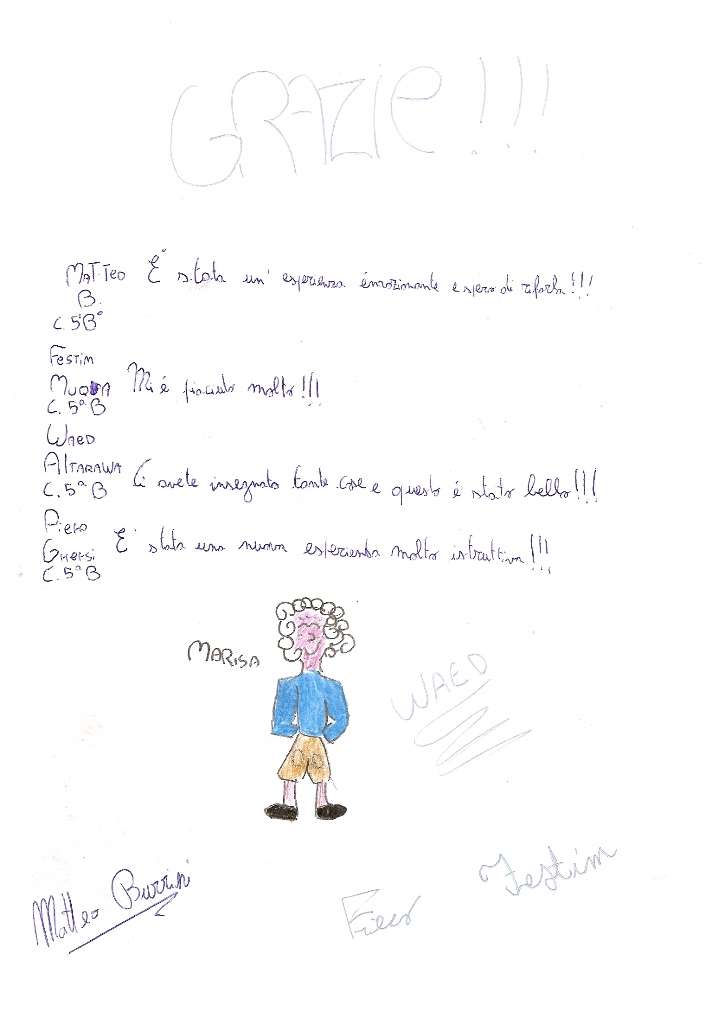 GRAZIE!!!
MATTEO È stata un' esperienza émozionante e spero di rifarla!!!
B.
C. 5ªB
FESTIM
MUQA Mi é piaciuto molto!!!
C. 5ª B
WAED
ALTARAWA Ci avete insegnato tante cose e questo é stato bello!!!
C. 5ª B
PIERO
GHERSI E' stata una nuova esperienza molto istruttiva!!!
C. 5ª B
MARISA
WAED
Festim
Matteo Burrini